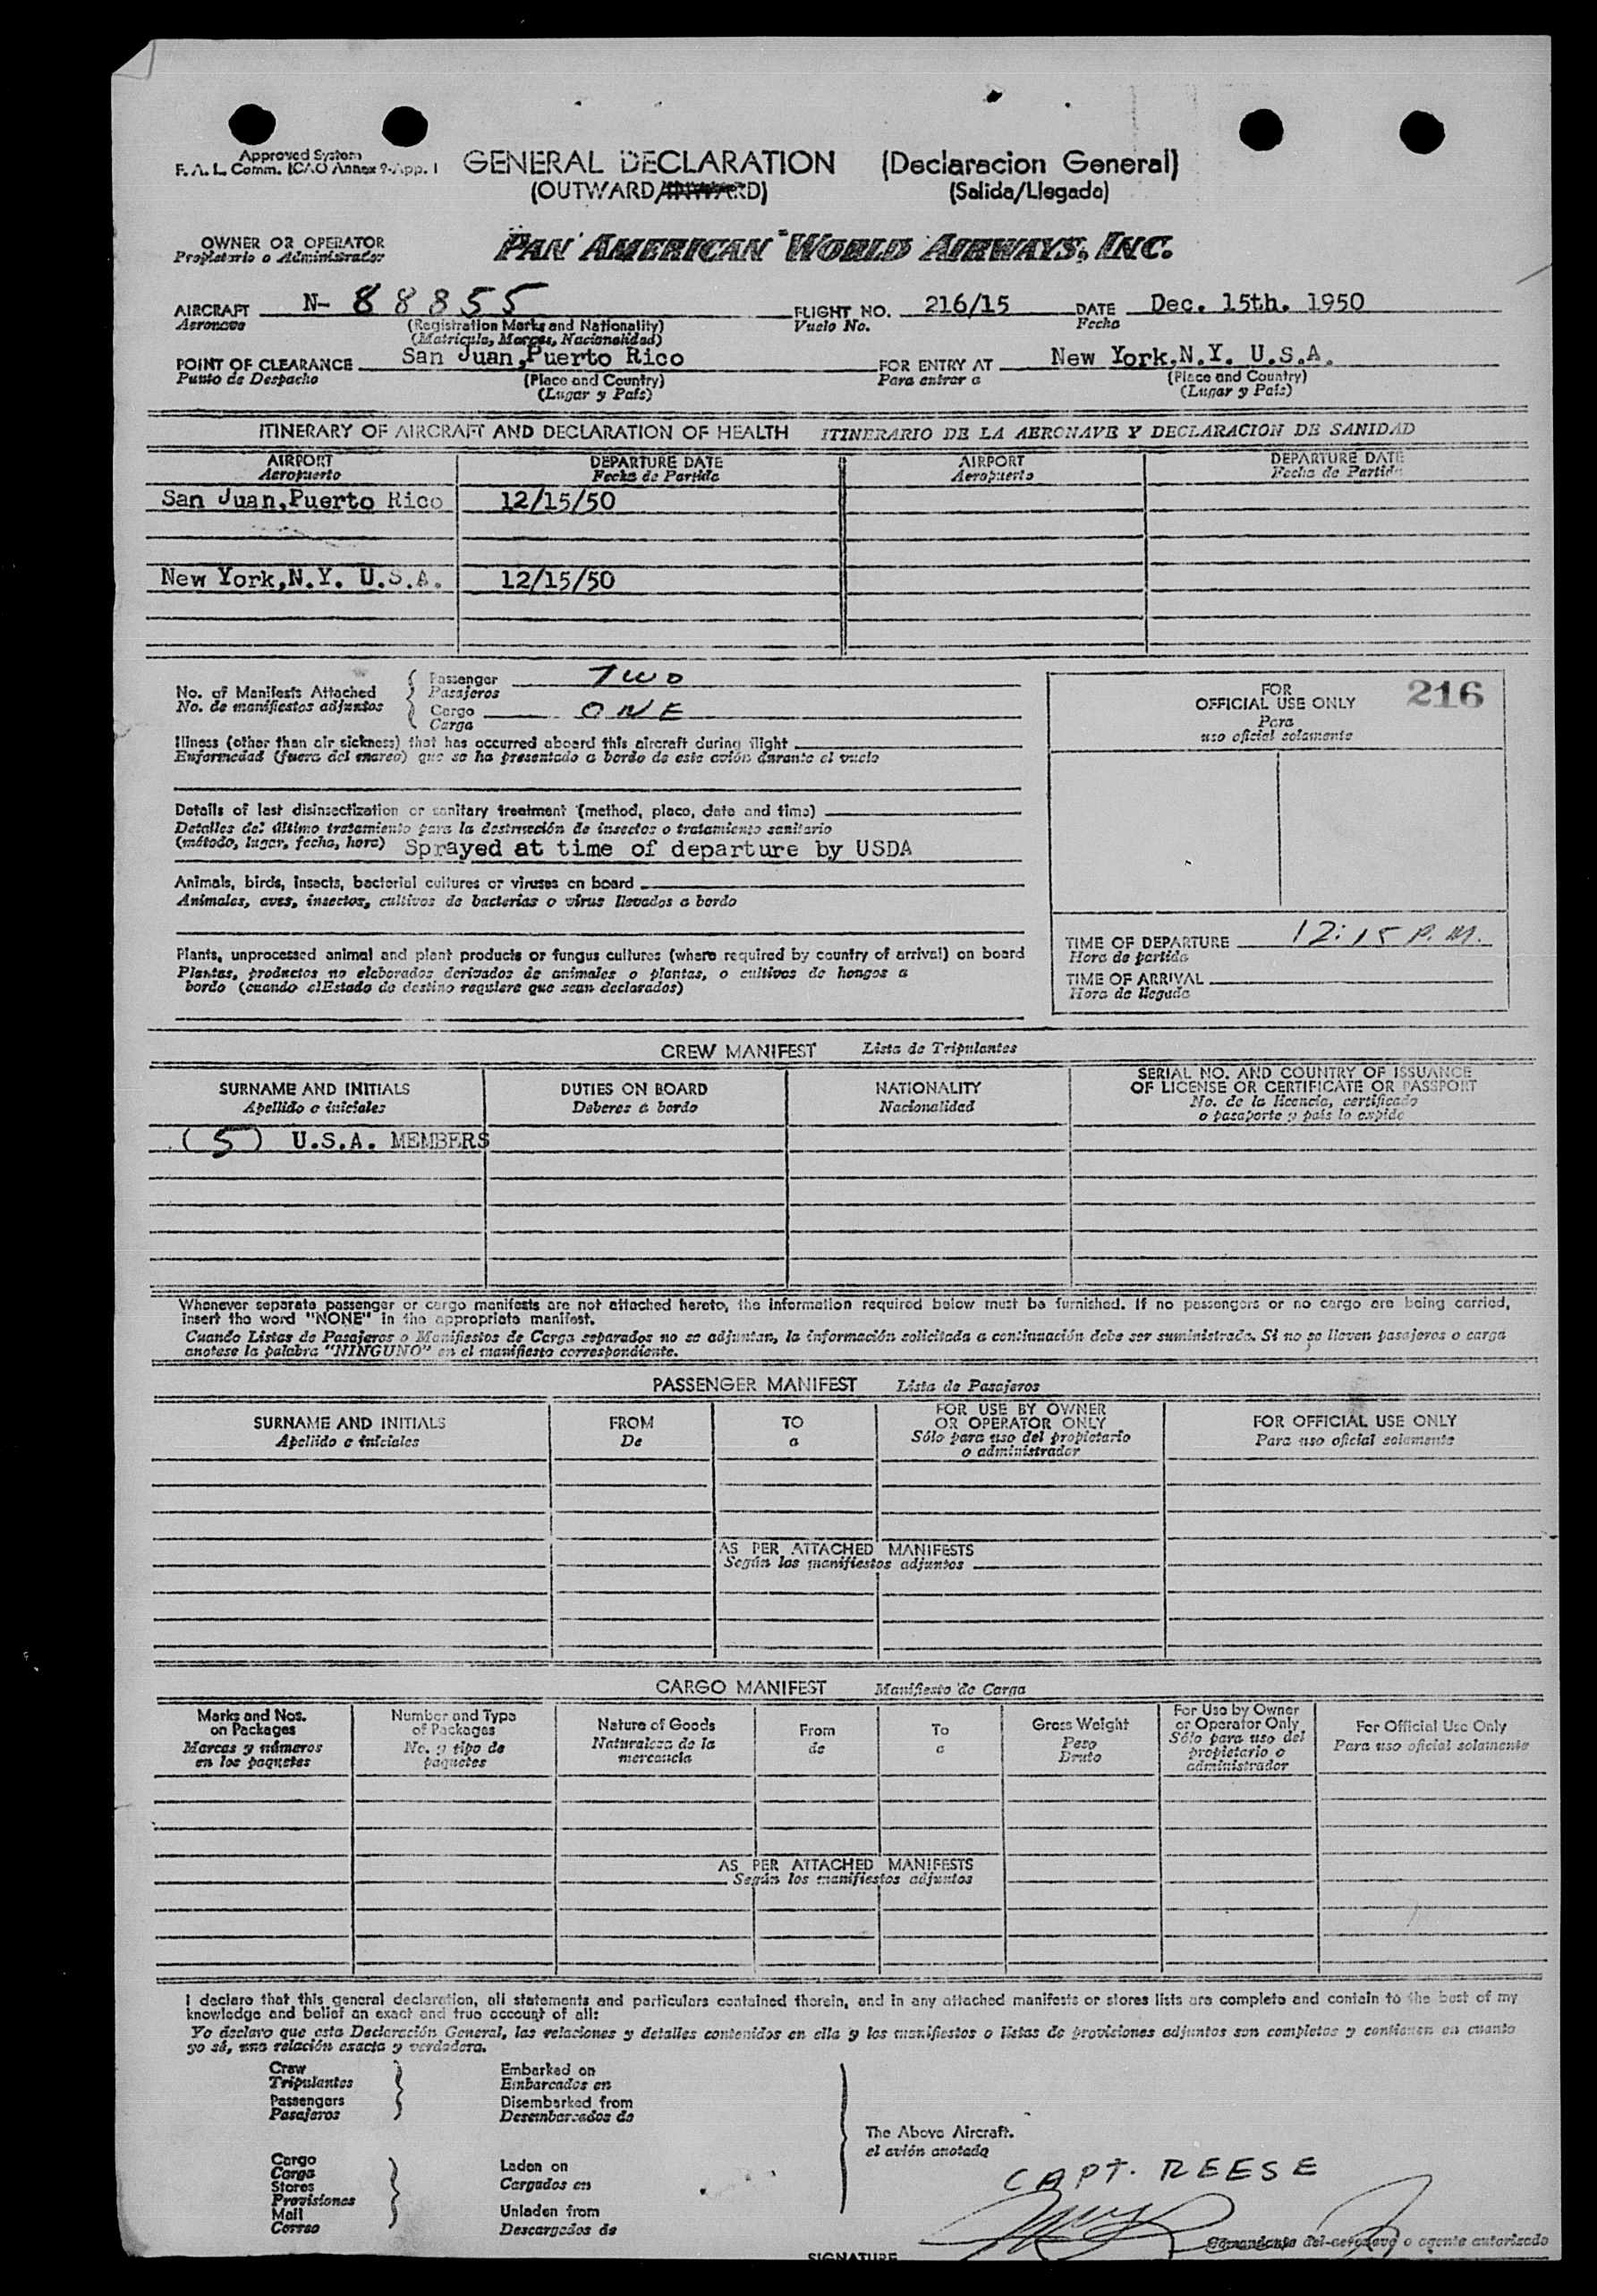 Approved System
F. A. L. Comm. ICAO Annex 9-App. I
GENERAL DECLARATION (Declaracion General)
(OUTWARD/INWARD) (Salida/Llegada)
OWNER OR OPERATOR
Propietario o Administrador
PAN AMERICAN WORLD AIRWAYS, INC.
AIRCRAFT N- 88855 FLIGHT NO. 216/15 DATE Dec. 15th. 1950
Aeronave (Registration Marks and Nationality) Vuelo No. Fecha
(Matricula, Marcas, Nacionalidad)
POINT OF CLEARANCE San Juan,Puerto Rico FOR ENTRY AT New York,N.Y. U.S.A.
Punto de Despacho (Place and Country) Para entrar a (Place and Country)
(Lugar y País) (Lugar y País)
ITINERARY OF AIRCRAFT AND DECLARATION OF HEALTH ITINERARIO DE LA AERONAVE Y DECLARACION DE SANIDAD
AIRPORT DEPARTURE DATE AIRPORT DEPARTURE DATE
Aeropuerto Fecha de Partida Aeropuerto Fecha de Partida
San Juan,Puerto Rico 12/15/50
New York,N.Y. U.S.A. 12/15/50
No. of Manifests Attached
No. de manifiestos adjuntos
Passenger TWO
Pasajeros
Cargo ONE
Carga
FOR
OFFICIAL USE ONLY 216
Para
uso oficial solamente
Illness (other than air sickness) that has occurred aboard this aircraft during flight
Enfermedad (fuera del mareo) que se ha presentado a bordo de este avión durante el vuelo
Details of last disinsectization or sanitary treatment (method, place, date and time)
Detalles del último tratamiento para la destrucción de insectos o tratamiento sanitario
(método, lugar, fecha, hora) Sprayed at time of departure by USDA
Animals, birds, insects, bacterial cultures or viruses on board
Animales, aves, insectos, cultivos de bacterias o virus llevados a bordo
Plants, unprocessed animal and plant products or fungus cultures (where required by country of arrival) on board
Plantas, productos no elaborados derivados de animales o plantas, o cultivos de hongos a
bordo (cuando elEstado de destino requiere que sean declarados)
TIME OF DEPARTURE 12:15 P.M.
Hora de partida
TIME OF ARRIVAL
Hora de llegada
CREW MANIFEST Lista de Tripulantes
SURNAME AND INITIALS DUTIES ON BOARD NATIONALITY SERIAL NO. AND COUNTRY OF ISSUANCE
OF LICENSE OR CERTIFICATE OR PASSPORT
Apellido e iniciales Deberes a bordo Nacionalidad No. de la licencia, certificado
o pasaporte y país lo expide
(5) U.S.A. MEMBERS
Whenever separate passenger or cargo manifests are not attached hereto, the information required below must be furnished. If no passengers or no cargo are being carried,
insert the word "NONE" in the appropriate manifest.
Cuando Listas de Pasajeros o Manifiestos de Carga separados no se adjuntan, la información solicitada a continuación debe ser suministrada. Si no se lleven pasajeros o carga
anotese la palabra "NINGUNO" en el manifiesto correspondiente.
PASSENGER MANIFEST Lista de Pasajeros
SURNAME AND INITIALS FROM TO FOR USE BY OWNER FOR OFFICIAL USE ONLY
OR OPERATOR ONLY
Apellido e iniciales De a Sólo para uso del propietario Para uso oficial solamente
o administrador
AS PER ATTACHED MANIFESTS
Según los manifiestos adjuntos
CARGO MANIFEST Manifiesto de Carga
Marks and Nos.
on Packages
Marcas y números
en los paquetes
Number and Type
of Packages
No. y tipo de
paquetes
Nature of Goods
Naturaleza de la
mercancia
From
de
To
a
Gross Weight
Peso
Bruto
For Use by Owner
or Operator Only
Sólo para uso del
propietario o
administrador
For Official Use Only
Para uso oficial solamente
AS PER ATTACHED MANIFESTS
Según los manifiestos adjuntos
I declare that this general declaration, all statements and particulars contained therein, and in any attached manifests or stores lists are complete and contain to the best of my
knowledge and belief an exact and true account of all:
Yo declaro que esta Declaración General, las relaciones y detalles contenidos en ella y los manifiestos o listas de provisiones adjuntos son completos y contienen en cuanto
yo sé, una relación exacta y verdadera.
Crew Embarked on
Tripulantes Embarcados en
Passengers Disembarked from
Pasajeros Desembarcados de
The Above Aircraft.
el avión anotado
Cargo Laden on
Carga Cargados en
Stores
Provisiones
Mail Unladen from
Correo Descargados de
CAPT. REESE
SIGNATURE
Comandante del aeronave o agente autorizado